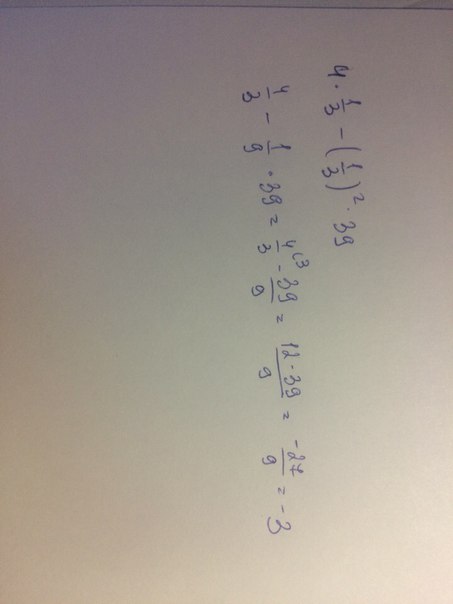 4 · 1/3 - (1/3)² · 39
4/3 - 1/9 · 39 = 4/3 (3 - 39/9 = 12 - 39/9 = -27/9 = -3